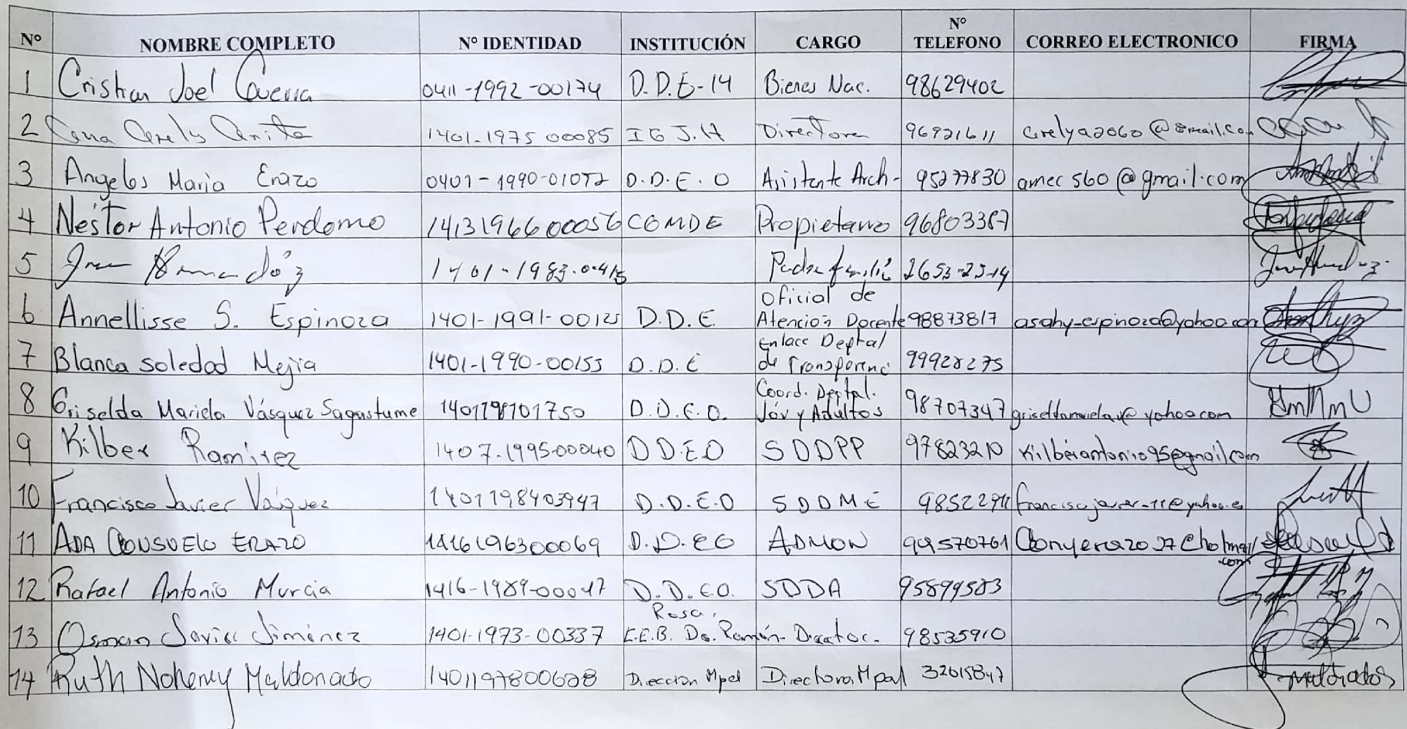 Nº NOMBRE COMPLETO Nº IDENTIDAD INSTITUCIÓN CARGO Nº TELEFONO CORREO ELECTRONICO FIRMA
1 Cristian Joel 0411-1992-00174 D.D.E-14 Bienes Nac. 98629402
2 1401-1975 00085 I G J.H Directora 96921611
3 Angeles Maria Erazo 0401-1990-01072 D.D.E.O Asistente Arch- 95277830 amec560@gmail.com
4 Nestor Antonio Perdomo 1413196600056 COMDE Propietario 96803387
5 1401-1983- Padre familia 2653-2514
6 Annellisse S. Espinoza 1401-1991-00125 D.D.E. Oficial de Atención Docente 98873817 asahy-espinoza@yahoo.com
7 Blanca Soledad Mejia 1401-1990-00155 D.D.E Enlace Deptal de Transparenci 99928275
8 Griselda Mariela Vásquez Sagastume 1401198101750 D.D.E.O. Coord. Deptal. Jóv y Adultos 98707347
9 Kilber Ramirez 1407-1995-00040 D D.E.O SDDPP 97823210 Kilberantonio95@gmail.com
10 Francisco Javier Vásquez 1401198403947 D.D.E.O SDDME 98522911
11 ADA CONSUELO ERAZO 1416196300069 D.D.EO ADMON 99570761
12 Rafael Antonio Murcia 1416-1989-00047 D.D.EO. SDDA 95899583
13 Osman Javier Jiménez 1401-1973-00337 C.E.B. Dr. Ramón Rosa. Director. 98535910
14 Ruth Nohemy Maldonado 1401197800628 Dirección Mpal Directora Mpal 32615847